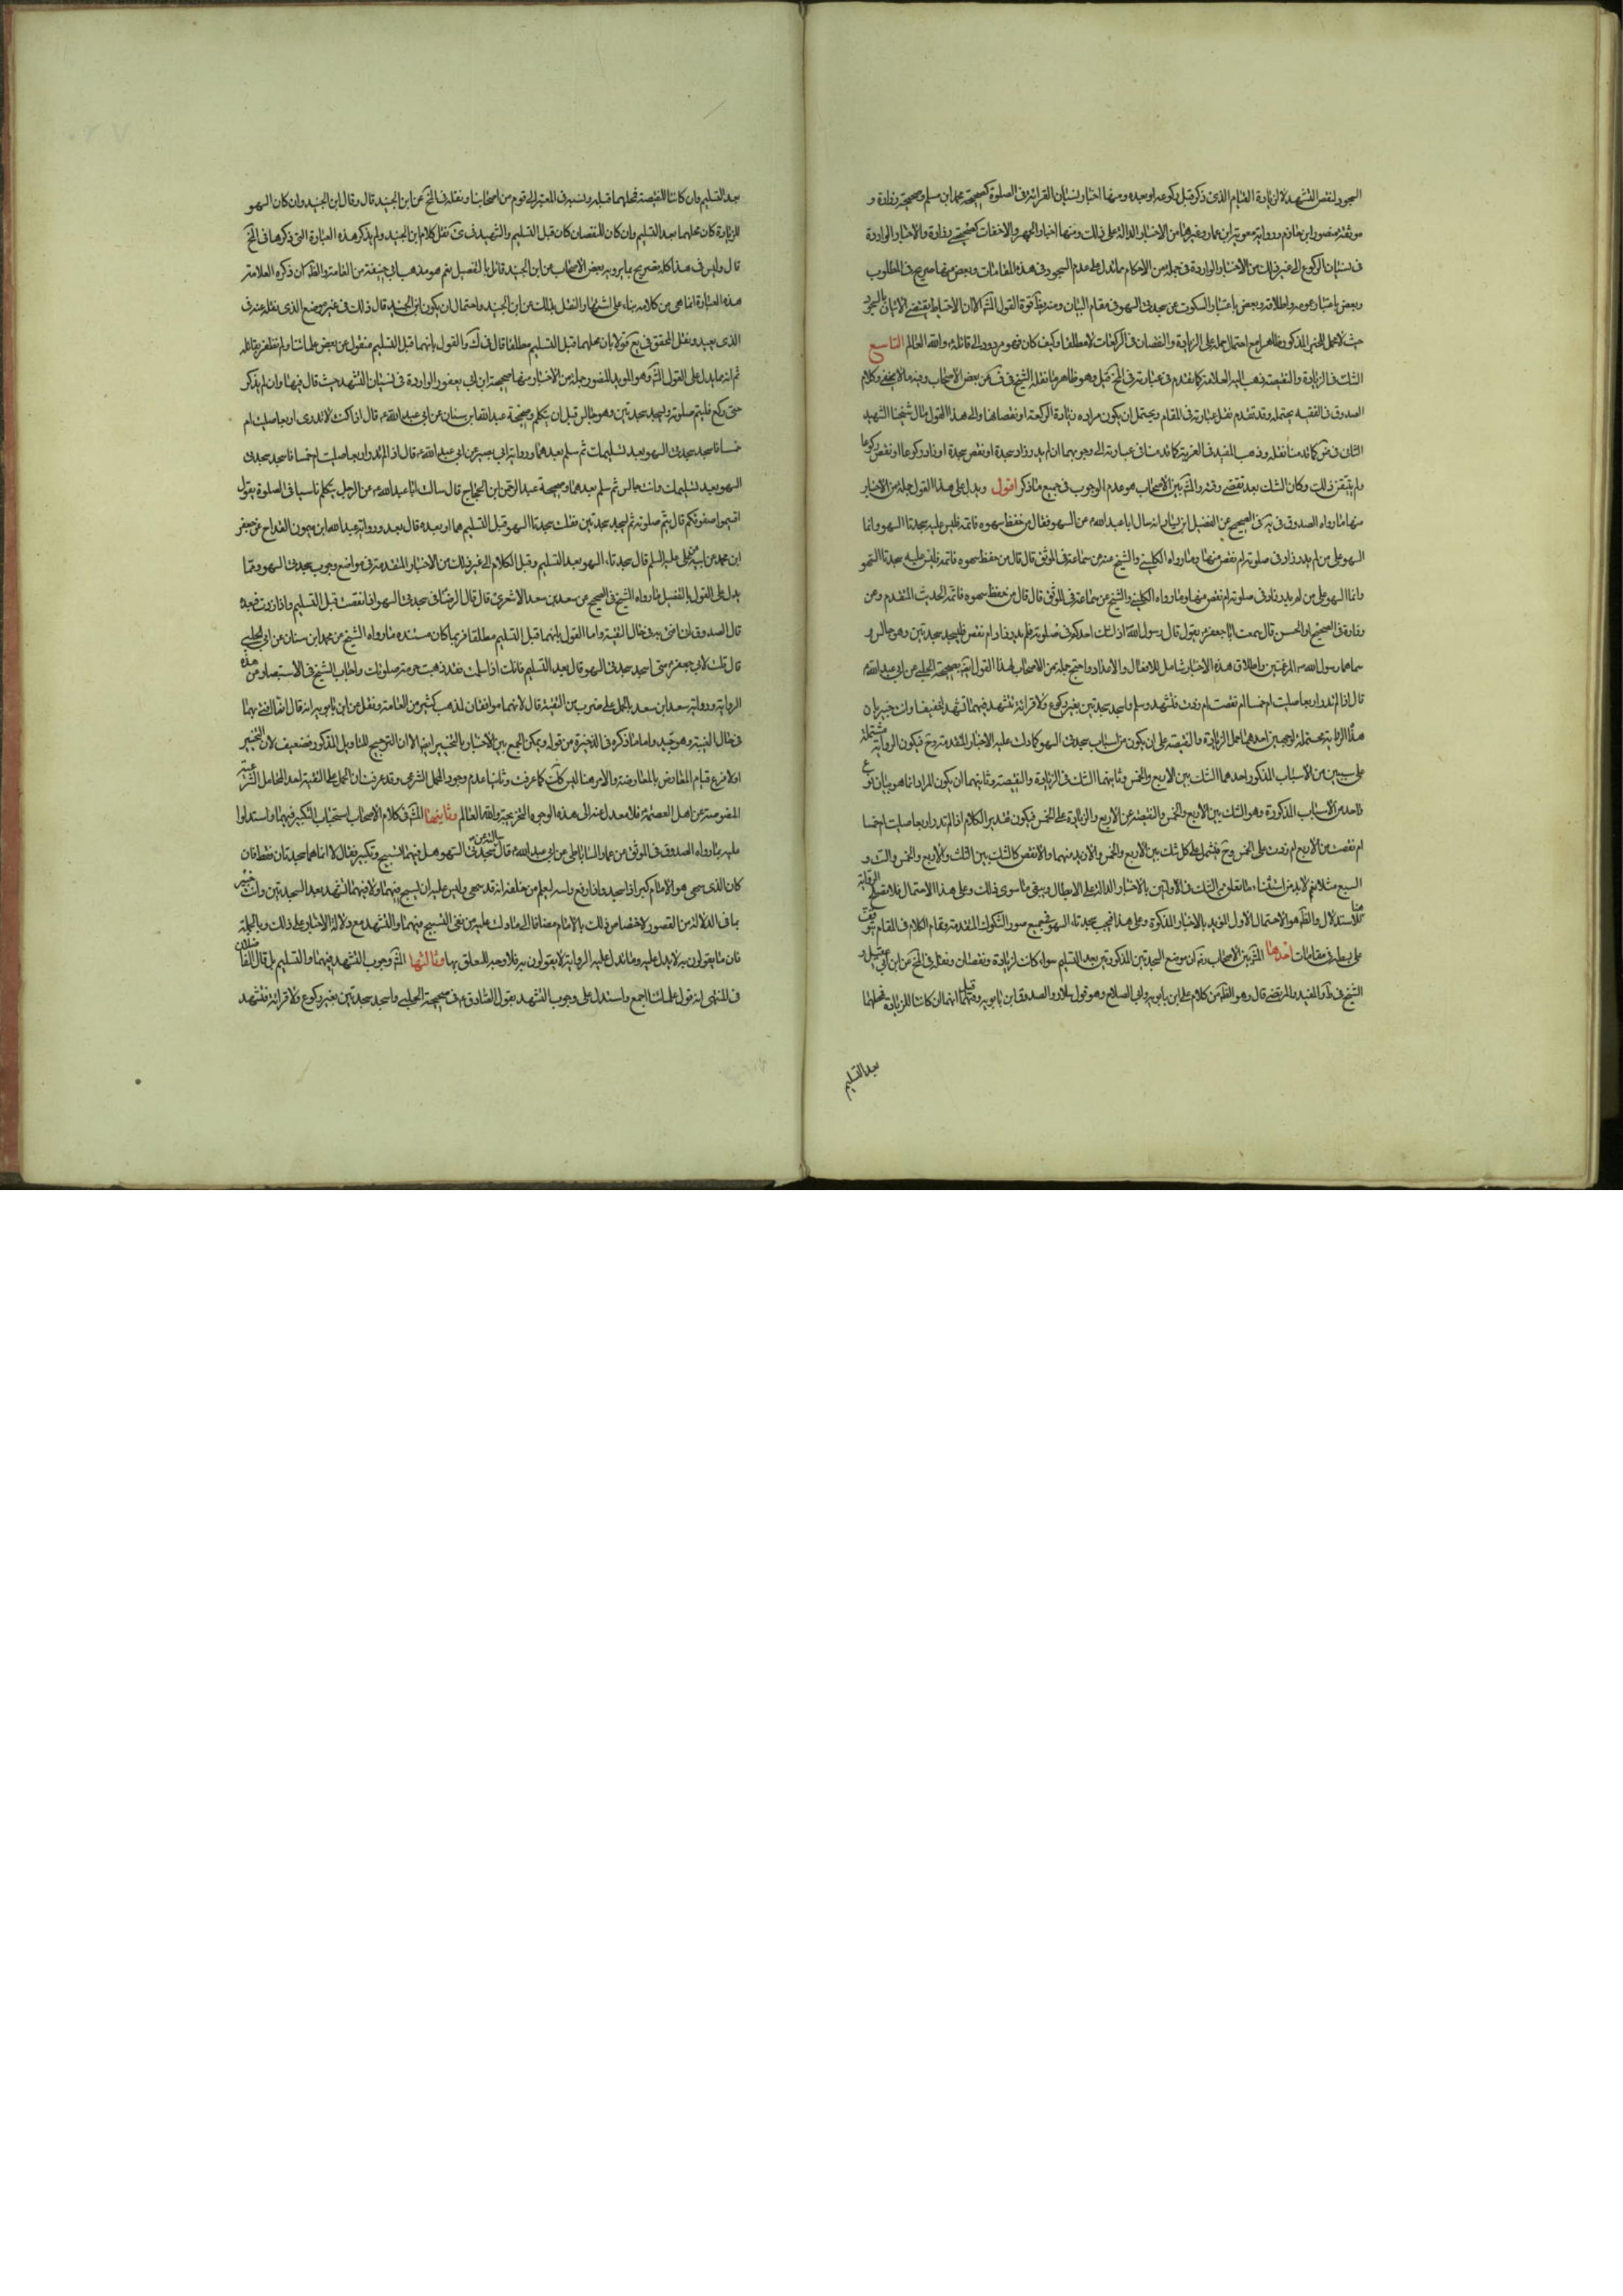 السجود لنقص التشهد لا لزيادة القيام الذى ذكر قبل ركوعه او بعده ومنها اخبار نسيان القرائة فى الصلوة كصحيحة محمد ابن مسلم وصحيحة زرارة و
موثقة منصور ابن حازم ورواية معوية ابن عمار وغيرها من الاخبار الدالة على ذلك ومنها اخبار الجهر والاخفات كصحيحتى زرارة والاخبار الواردة
فى نسيان الركوع الى غير ذلك من الاخبار الواردة فى جملة من الاحكام مما تدل على عدم السجود فى هذه المقامات وبعض منها صريح فى المطلوب
وبعض باعتبار عمومه واطلاقه وبعض باعتبار السكوت عن سجدتى السهو فى مقام البيان ومنه يظهر قوة القول المش الا ان الاحتياط يقتضى الاتيان بالسجود
التاسع
الشك فى الزيادة والنقيصة ذهب اليه العلامة كما تقدم فى عبارته فى المخ قبل وهو ظاهر ما نقله الشيخ فى ف عن بعض الاصحاب وفيه ما لا يخفى وكلام
الصدوق فى الفقيه يحتمله وقد تقدم نقل عبارته فى المقام ويحتمل ان يكون مراده زيادة الركعة او نقصانها والى هذا القول مال شيخنا الشهيد
الثانى فى ض كما قدمنا نقله وذهب المفيد فى الغرية كما قدمنا فى عبارته الى وجوبهما ان لم يدر زاد سجدة او نقص سجدة او زاد ركوعا او نقص ركوعا
ولم يتيقن ذلك وكان الشك بعد تقضى وقته والمش بين الاصحاب هو عدم الوجوب فى جميع ما ذكر اقول ويدل على هذا القول جملة من الاخبار
منها ما رواه الصدوق فى يه فى الصحيح عن الفضيل ابن يسار انه سال ابا عبد الله ع عن السهو فقال من حفظ سهوه فاتمه فليس عليه سجدتا السهو وانما
السهو على من لم يدر زاد فى صلوته ام نقص منها وما رواه الكلينى والشيخ عنه عن سماعة فى الموثق قال قال من حفظ سهوه فاتمه فليس عليه سجدتا السهو
وانما السهو على من لم يدر زاد فى صلوته ام نقص منها وما رواه الكلينى والشيخ عن سماعة فى الموثق قال قال من حفظ سهوه فاتمه الحديث المتقدم وعن
زرارة فى الصحيح او الحسن قال سمعت ابا جعفر ع يقول قال رسول الله ص اذا شك احدكم فى صلوته فلم يدر زاد ام نقص فليسجد سجدتين وهو جالس و
سماهما رسول الله ص المرغمتين واطلاق هذه الاخبار شامل للافعال والاعداد واحتج جملة من الاصحاب لهذا القول ايضا بصحيحة الحلبى عن ابى عبد الله ع
قال اذا لم تدر اربعا صليت ام خمسا ام نقصت ام زدت فتشهد وسلم واسجد سجدتين بغير ركوع ولا قرائة تتشهد فيهما تشهدا خفيفا وانت خبير بان
هذه الرواية محتملة لوجهين احدهما حمل الزيادة والنقيصة على ان يكون من اسباب سجدتى السهو كما دلت عليه الاخبار المتقدمة وح فيكون الرواية مشتملة
على سببين من الاسباب المذكور احدهما الشك بين الاربع والخمس وثانيهما الشك فى الزيادة والنقيصة وثانيهما ان يكون المراد انما هو بيان نوع
واحد من الاسباب المذكورة وهو الشك بين الاربع والخمس والنقيصة عن الاربع والزيادة على الخمس فيكون تقدير الكلام اذا لم تدر اربعا صليت ام خمسا
ام نقصت من الاربع ام زدت على الخمس وح فيشمل على كل شك بين الاربع والخمس والازيد منهما والانقص كالشك بين الثلث والاربع والخمس والست و
السبع مثلا نعم لابد من استثناء ما تعلق من الشك فى الاولتين بالاخبار الدالة على الابطال ويبقى ما سوى ذلك وعلى هذا الاحتمال فلا تصلح الرواية
للاستدلال والظ هو الاحتمال الاول المؤيد بالاخبار المذكورة وعلى هذا فيجب سجدتا السهو فى جميع صور الشكوك المتقدمة وتمام الكلام فى المقام يتوقف
على بسطه فى مقامات احدها المش بين الاصحاب رض ان موضع السجدتين المذكورتين بعد التسليم سواء كان لزيادة ونقصان ونقله فى المخ عن ابن ابى عقيل و
الشيخ فى ط والمفيد والمرتضى قال وهو الظ من كلام على ابن بابويه وابى الصلاح وهو قول سلار والصدوق ابن بابويه وقيل انهما ان كانتا للزيادة فمحلهما
بعد التسليم
بعد التسليم وان كانتا للنقيصة فمحلهما قبله ونسبه فى المعتبر الى قوم من اصحابنا ونقله فى المخ عن ابن الجنيد قال وقال ابن الجنيد وان كان السهو
للزيادة كان محلهما بعد التسليم وان كان للنقصان كان قبل التسليم والشهيد فى كرى نقل كلام ابن الجنيد ولم يذكر هذه العبارة التى ذكرها فى المخ
قال وليس فى هذا كله تصريح بما يرويه بعض الاصحاب من ابن الجنيد قائل بالتفصيل نعم هو مذهب ابى حنيفة من العامة والظ ان ذكره العلامة
هذه العبارة انما هى من كلامه بناء على اشتهار النقل بذلك عن ابن الجنيد واحتمال ان يكون ابن الجنيد قال ذلك فى غير موضع الذى نقله عنه فى
الذى بعيد ونقل المحقق فى يع قولا بان محلهما قبل التسليم مطلقا قال فى ك والقول بانهما قبل التسليم منقول عن بعض علمائنا ولم نظفر بقائله
ثم انه مما يدل على القول المش وهو المؤيد المنصور جملة من الاخبار منها صحيحة ابن ابى يعفور الواردة فى نسيان التشهد حيث قال فيها وان لم يذكر
حتى ركع فليتم صلوته وليسجد سجدتين وهو جالس قبل ان يتكلم وصحيحة عبد الله ابن سنان عن ابى عبد الله ع قال اذا كنت لا تدرى اربعا صليت ام
خمسا فاسجد سجدتى السهو بعد تسليمك ثم سلم بعدهما ورواية ابى بصير عن ابى عبد الله ع قال اذا لم تدر اربعا صليت ام خمسا فاسجد سجدتى
السهو بعد تسليمك وانت جالس ثم سلم بعدهما وصحيحة عبد الرحمن ابن الحجاج قال سالت ابا عبد الله ع عن الرجل يتكلم ناسيا فى الصلوة يقول
اقيموا صفوفكم قال يتم صلوته ثم ليسجد سجدتين فقلت سجدتا السهو قبل التسليم هما او بعده قال بعد ورواية عبد الله ابن ميمون القداح عن جعفر
ابن محمد عن ابيه عن على عليه السلم قال سجدتا السهو بعد التسليم وقبل الكلام الى غير ذلك من الاخبار المتقدمة فى مواضع وجوب سجدتى السهو ومما
يدل على القول بالتفصيل ما رواه الشيخ فى الصحيح عن سعد بن سعد الاشعرى قال قال الرضا ع فى سجدتى السهو اذا نقصت قبل التسليم واذا زدت فبعده
قال الصدوق ان افتى به فى حال التقية واما القول بانهما قبل التسليم مطلقا فربما كان مستنده ما رواه الشيخ عن محمد ابن سنان عن ابى الجارود
قال قلت لابى جعفر ع متى اسجد سجدتى السهو قال بعد التسليم فانك اذا سلمت فقد ذهبت حرمة صلوتك واجاب الشيخ فى الاستبصار عن هذه
الرواية ورواية سعد ابن سعد بالحمل على ضرب من التقية قال لانهما موافقان لمذهب كثير من العامة ونقل عن ابن بابويه انه قال انما افتى بهما
فى حال التقية وهو جيد واما ما ذكره فى الذخيرة من قوله ويمكن الجمع بين الاخبار بالتخيير ايضا الا ان الترجيح للتاويل المذكور فضعيف لان التخيير
المنصوصة عن اهل العصمة ع فلا معدل عنه الى هذه الوجوه التخريجية والله العالم وثانيها المش فى كلام الاصحاب استحباب التكبير فيهما واستدلوا
عليه بما رواه الصدوق فى الموثق عن عمار الساباطى عن ابى عبد الله ع قال سالته عن سجدتى السهو هل فيهما تسبيح وتكبير فقال لا انما هما سجدتان فقط فان
كان الذى سهى هو الامام كبر اذا سجد واذا رفع راسه ليعلم من خلفه انه قد سهى وليس عليه ان يسبح فيهما ولا فيهما تشهد بعد السجدتين وانت خبير
بما فى الدلالة من القصور لاختصاص ذلك بالامام مضافا الى ما دلت عليه من نفى التسبيح فيهما والتشهد مع دلالة الاخبار على ذلك وبالجملة
فان ما يقولون به لا يدل عليه وما تدل عليه الرواية لا يقولون به فلا وجه للتعلق بها وثالثها المش وجوب التشهد فيهما والتسليم بل قال الفاضلان
فى المنتهى انه قول علمائنا اجمع واستدل على وجوب التشهد بقول الصادق ع فى صحيحة الحلبى واسجد سجدتين بغير ركوع ولا قرائة فتشهد